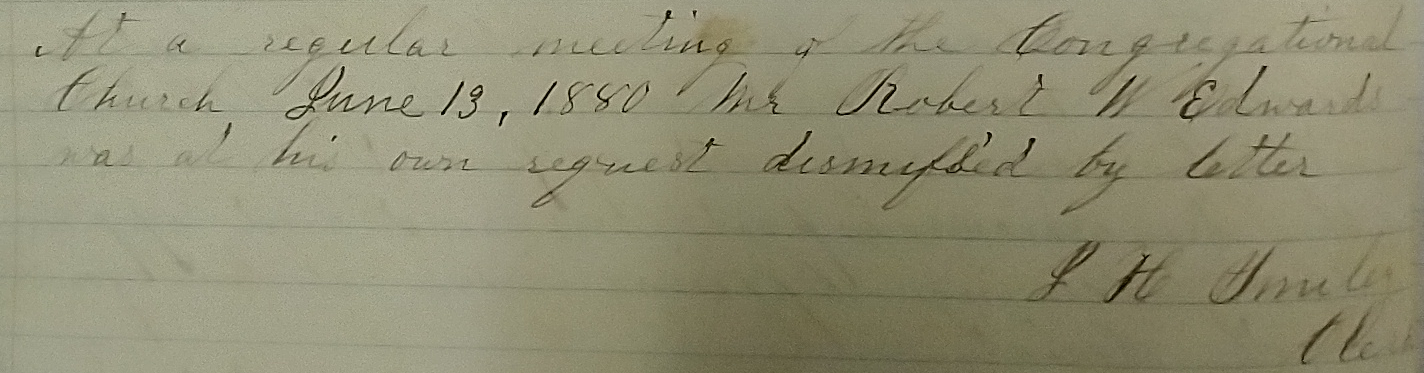 At a regular meeting of the Congregational
Church, June 13, 1880 Mr Robert W Edwards
was at his own request dismissed by letter
H
Clerk